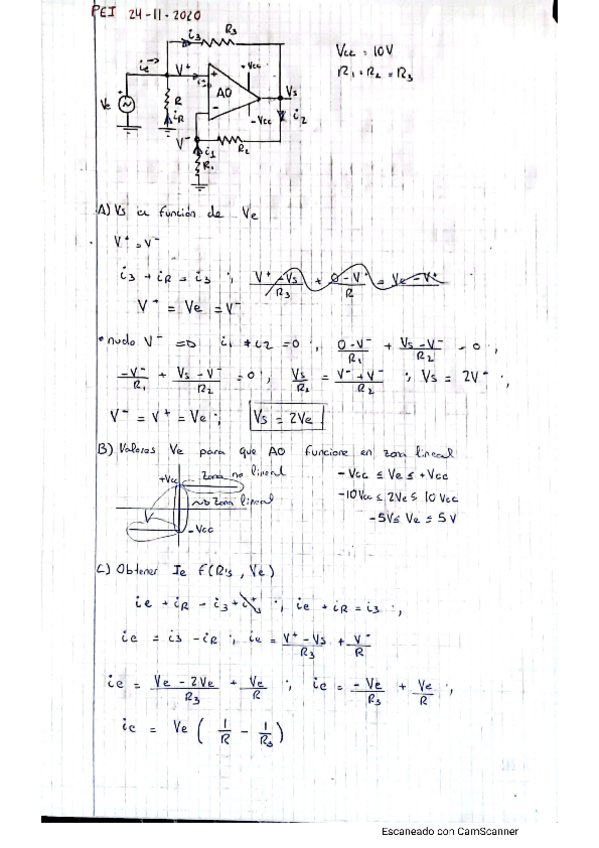 PEI 24-11-2020
i3 R3
Vcc = 10V
R1 = R2 = R3
ie V+ +Vcc
AO Vs
Ve R iR -Vcc i2
V- i1 R2
R1
A) Vs en función de Ve
V+ = V-
i3 + iR = i3 ; V+ - Vs / R3 + 0 - V+ / R = Ve - V+
V+ = Ve = V-
• nudo V- => i1 + i2 = 0 ; 0 - V- / R1 + Vs - V- / R2 = 0 ;
-V- / R1 + Vs - V- / R2 = 0 ; Vs / R2 = V- + V- / R2 ; Vs = 2V- ;
V- = V+ = Ve ; Vs = 2Ve
B) Valores Ve para que AO funcione en zona lineal
+Vcc Zona no lineal
-Vcc ≤ Ve ≤ +Vcc
no zona lineal
-10Vcc ≤ 2Ve ≤ 10 Vcc
-Vcc
-5V ≤ Ve ≤ 5V
C) Obtener Ie F(R's, Ve)
ie + iR = i3 + i+ ; ie + iR = i3 ;
ie = i3 - iR ; ie = V+ - Vs / R3 + V- / R
ie = Ve - 2Ve / R3 + Ve / R ; ie = - Ve / R3 + Ve / R ;
ie = Ve ( 1/R - 1/R3 )
Escaneado con CamScanner